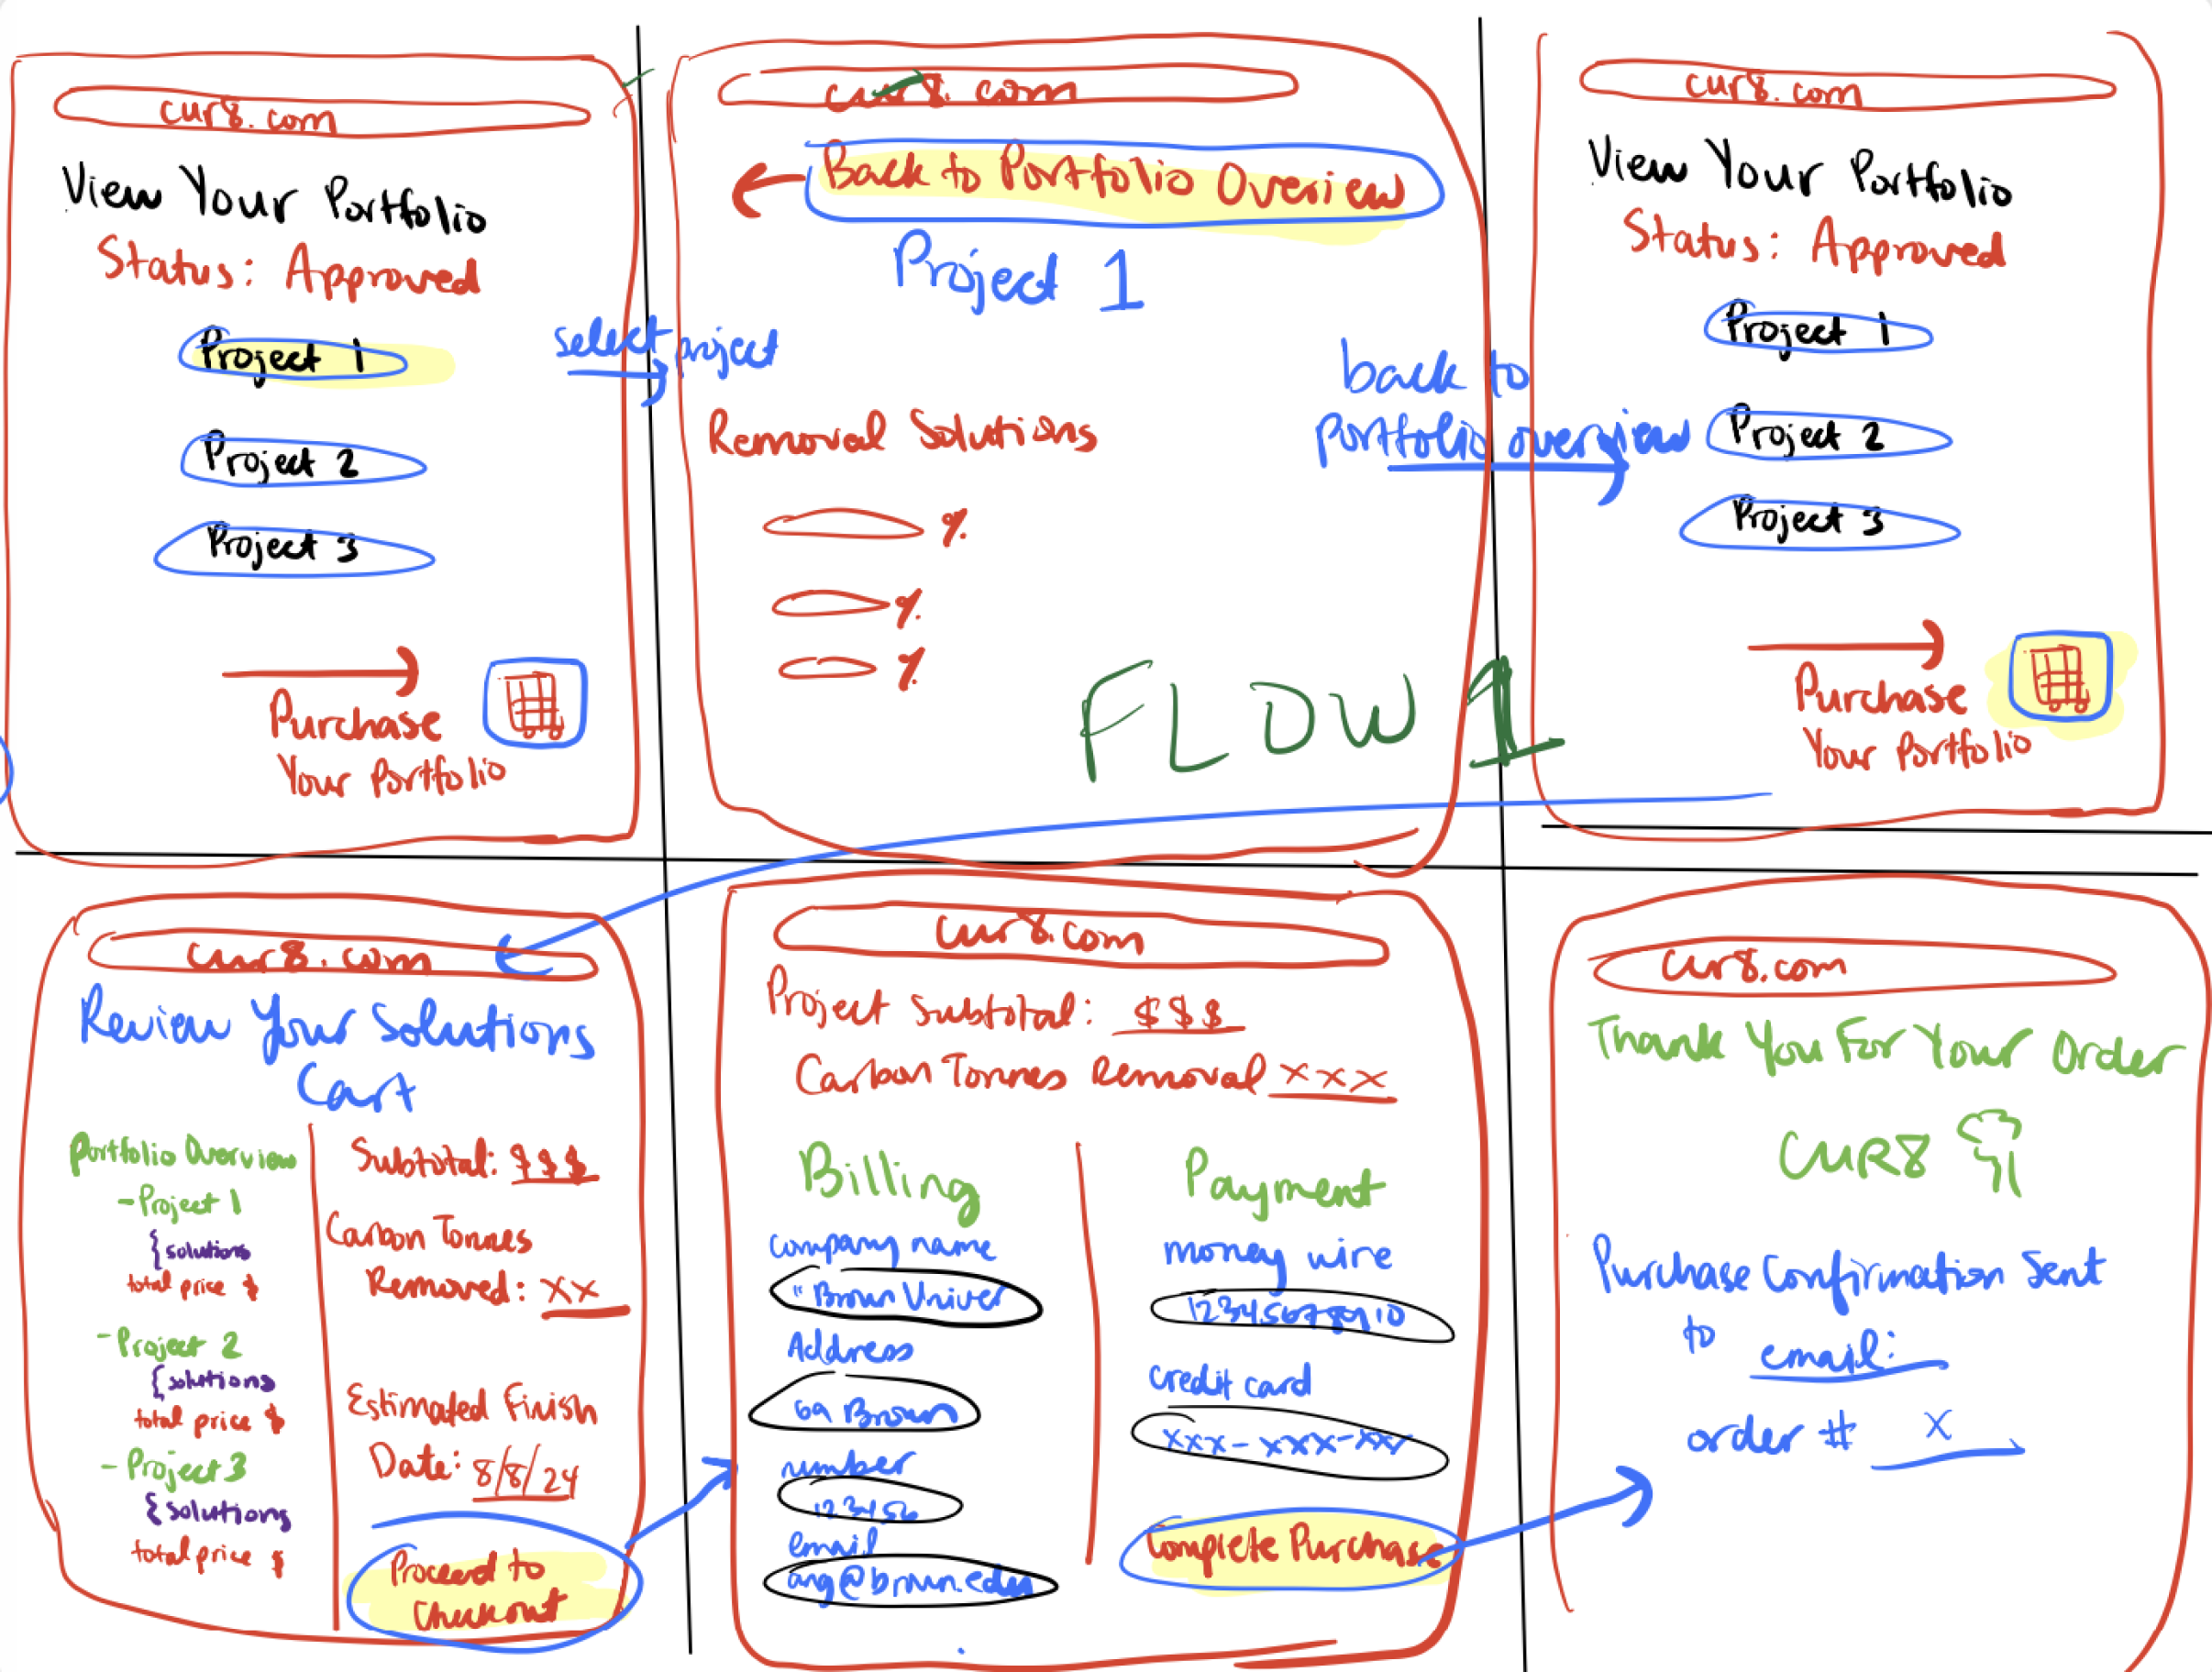 cur8.com
View Your Portfolio
Status: Approved
Project 1
Project 2
Project 3
Purchase
Your Portfolio
select project
cur8.com
Back to Portfolio Overview
Project 1
Removal Solutions
%
%
%
FLOW 1
back to
portfolio overview
cur8.com
View Your Portfolio
Status: Approved
Project 1
Project 2
Project 3
Purchase
Your Portfolio
cur8.com
Review Your Solutions
Cart
Portfolio Overview
- Project 1
{ solutions
total price $
- Project 2
{ solutions
total price $
- Project 3
{ solutions
total price $
Subtotal: $$$
Carbon Tonnes
Removed: xx
Estimated Finish
Date: 8/8/24
Proceed to
Checkout
cur8.com
Project Subtotal: $$$
Carbon Tonnes Removal xxx
Billing
company name
"Brown Univer
Address
69 Brown
number
123456
email
ang@brown.edu
Payment
money wire
12345678910
credit card
xxx-xxx-xxx
Complete Purchase
cur8.com
Thank You For Your Order
CUR8
Purchase Confirmation Sent
to email:
order # x